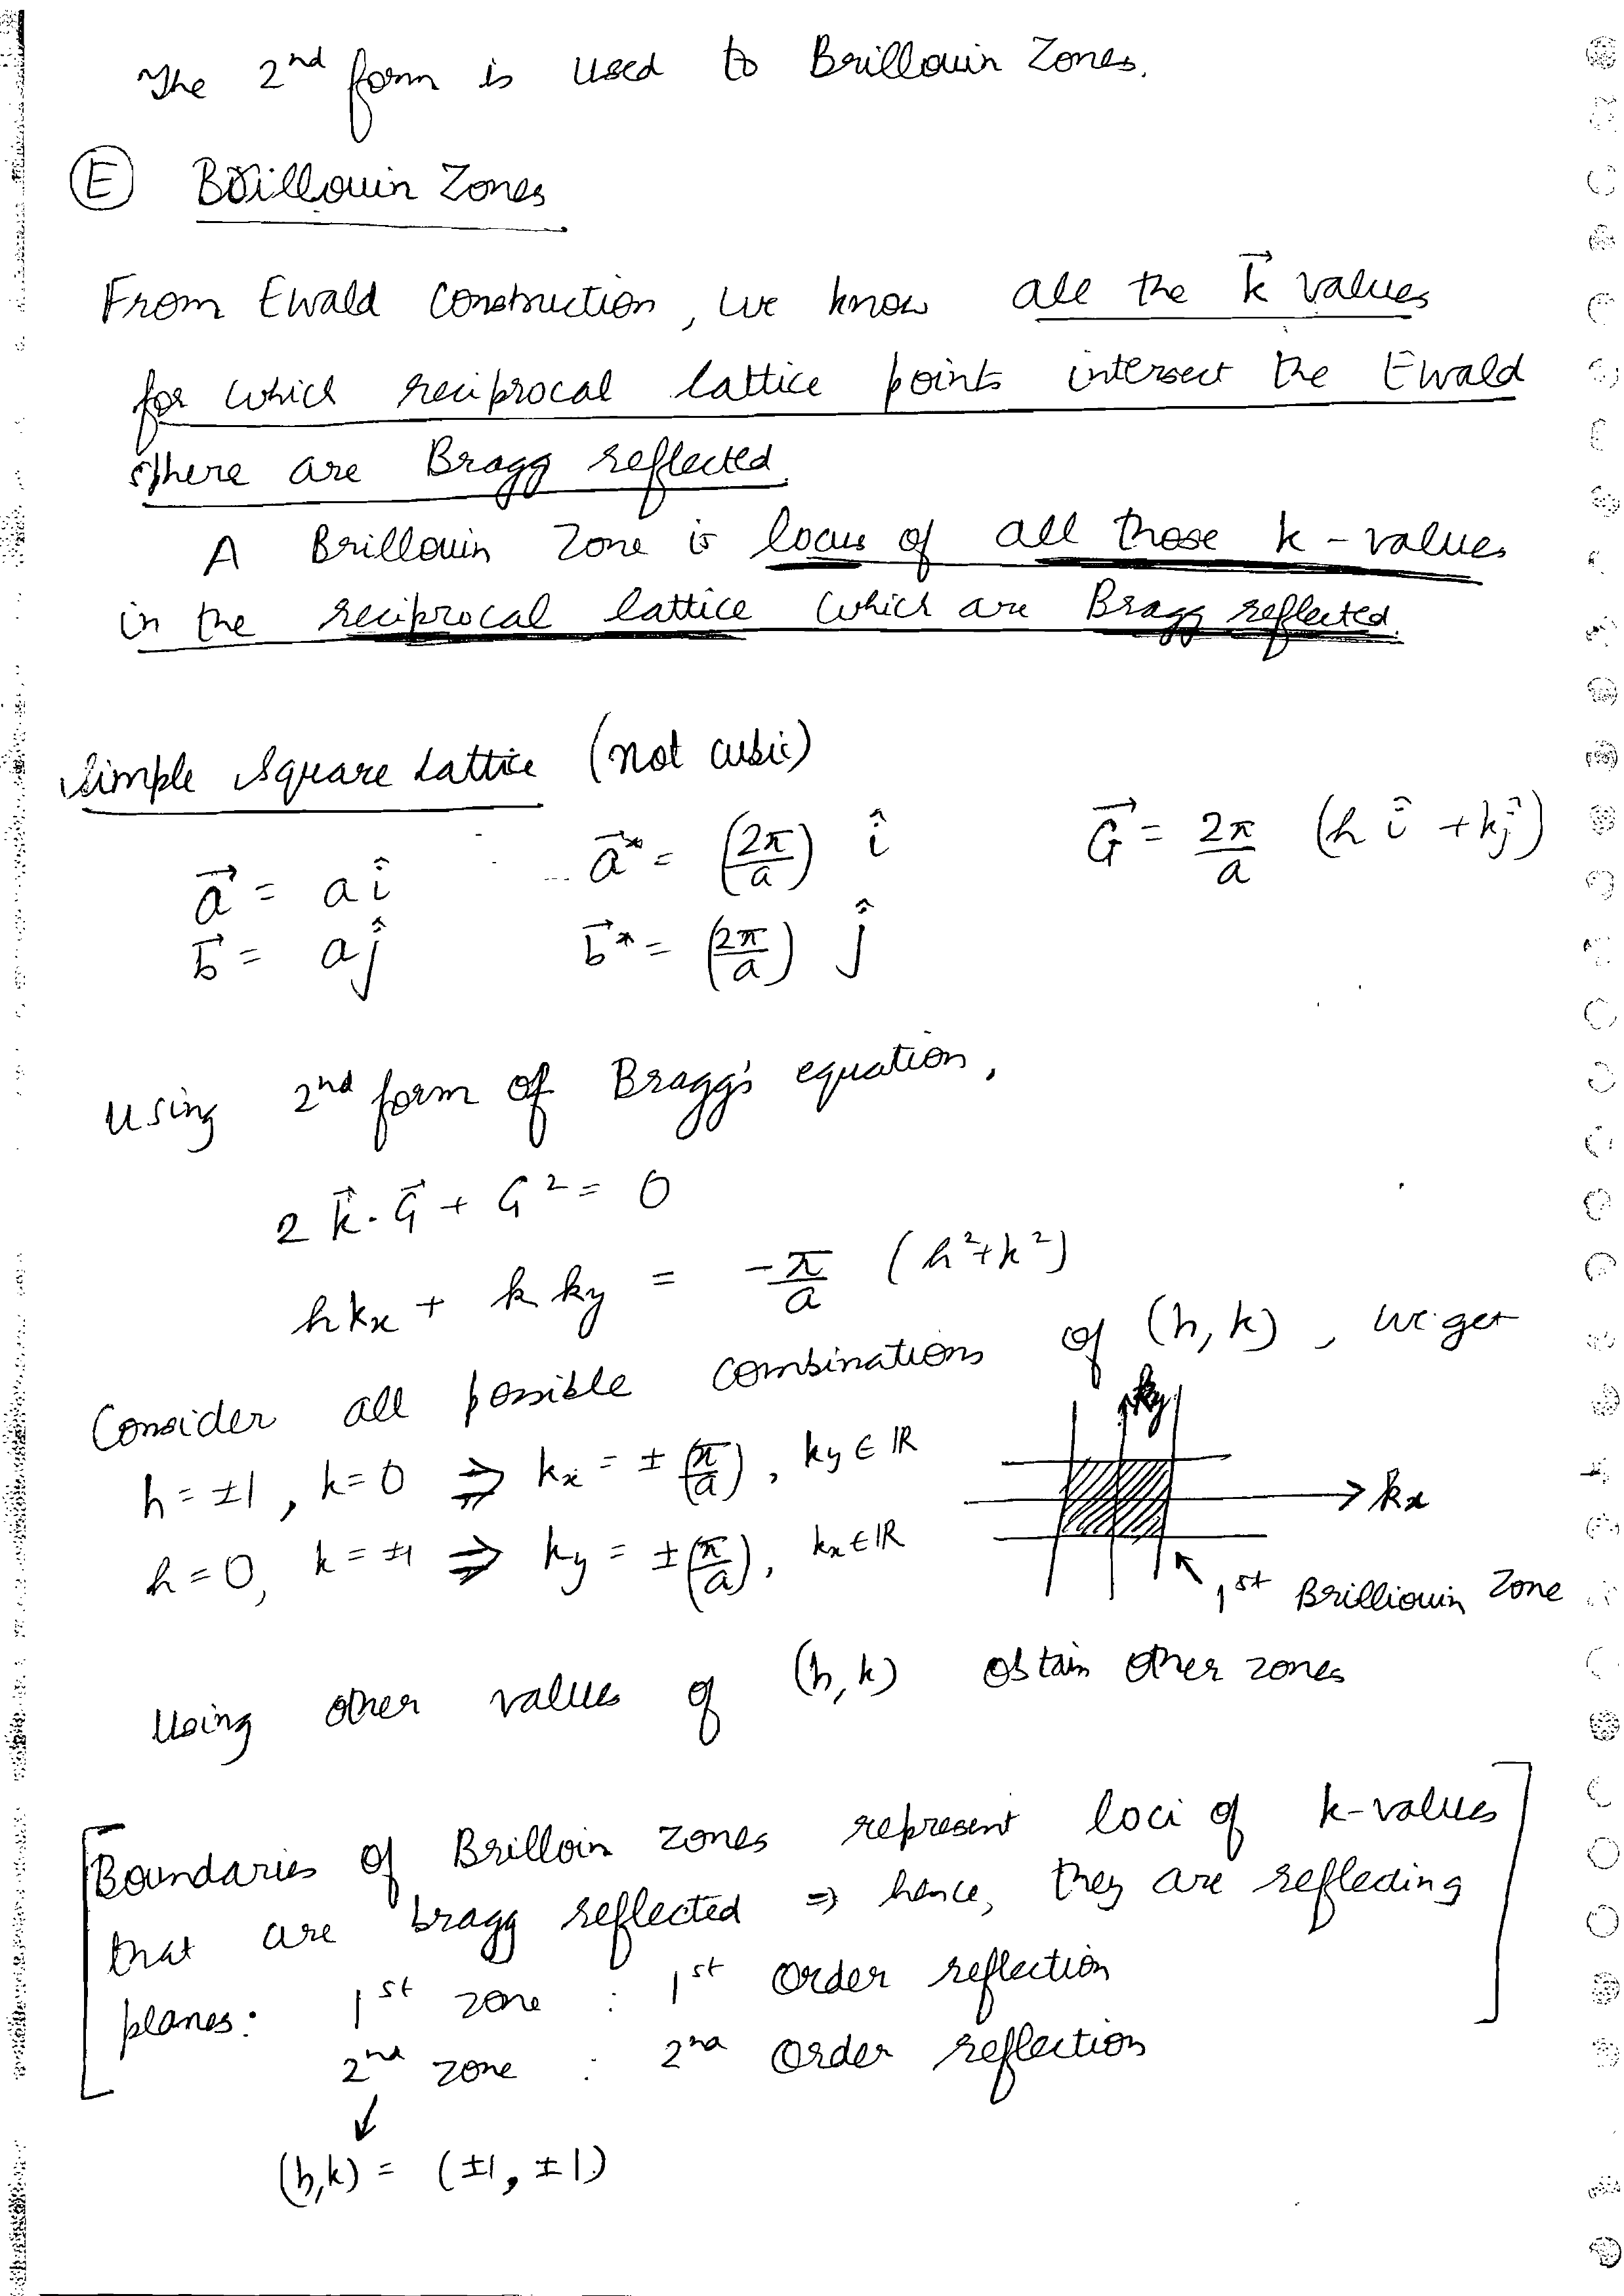 The 2nd form is used to Brillouin Zones.
(E) Brillouin Zones
From Ewald Construction, we know all the k⃗ values
for which reciprocal lattice points intersect the Ewald
sphere are Bragg reflected.
A Brillouin Zone is locus of all those k-values
in the reciprocal lattice which are Bragg reflected.
Simple Square Lattice (not cubic)
a⃗ = a î   a⃗* = (2π/a) î   G⃗ = 2π/a (h î + k ĵ)
b⃗ = a ĵ   b⃗* = (2π/a) ĵ
Using 2nd form of Bragg's equation,
2 k⃗·G⃗ + G² = 0
h kx + k ky = -π/a (h²+k²)
Consider all possible combinations of (h, k), we get
h = ±1, k = 0 ⇒ kx = ± (π/a), ky ∈ ℝ
h = 0, k = ±1 ⇒ ky = ± (π/a), kx ∈ ℝ
ky
kx
1st Brilliouin Zone
Using other values of (h, k) obtain other zones
Boundaries of Brilloin zones represent loci of k-values
that are bragg reflected ⇒ hence, they are reflecting
planes: 1st zone : 1st Order reflection
2nd zone : 2nd Order reflection
↓
(h,k) = (±1, ±1)